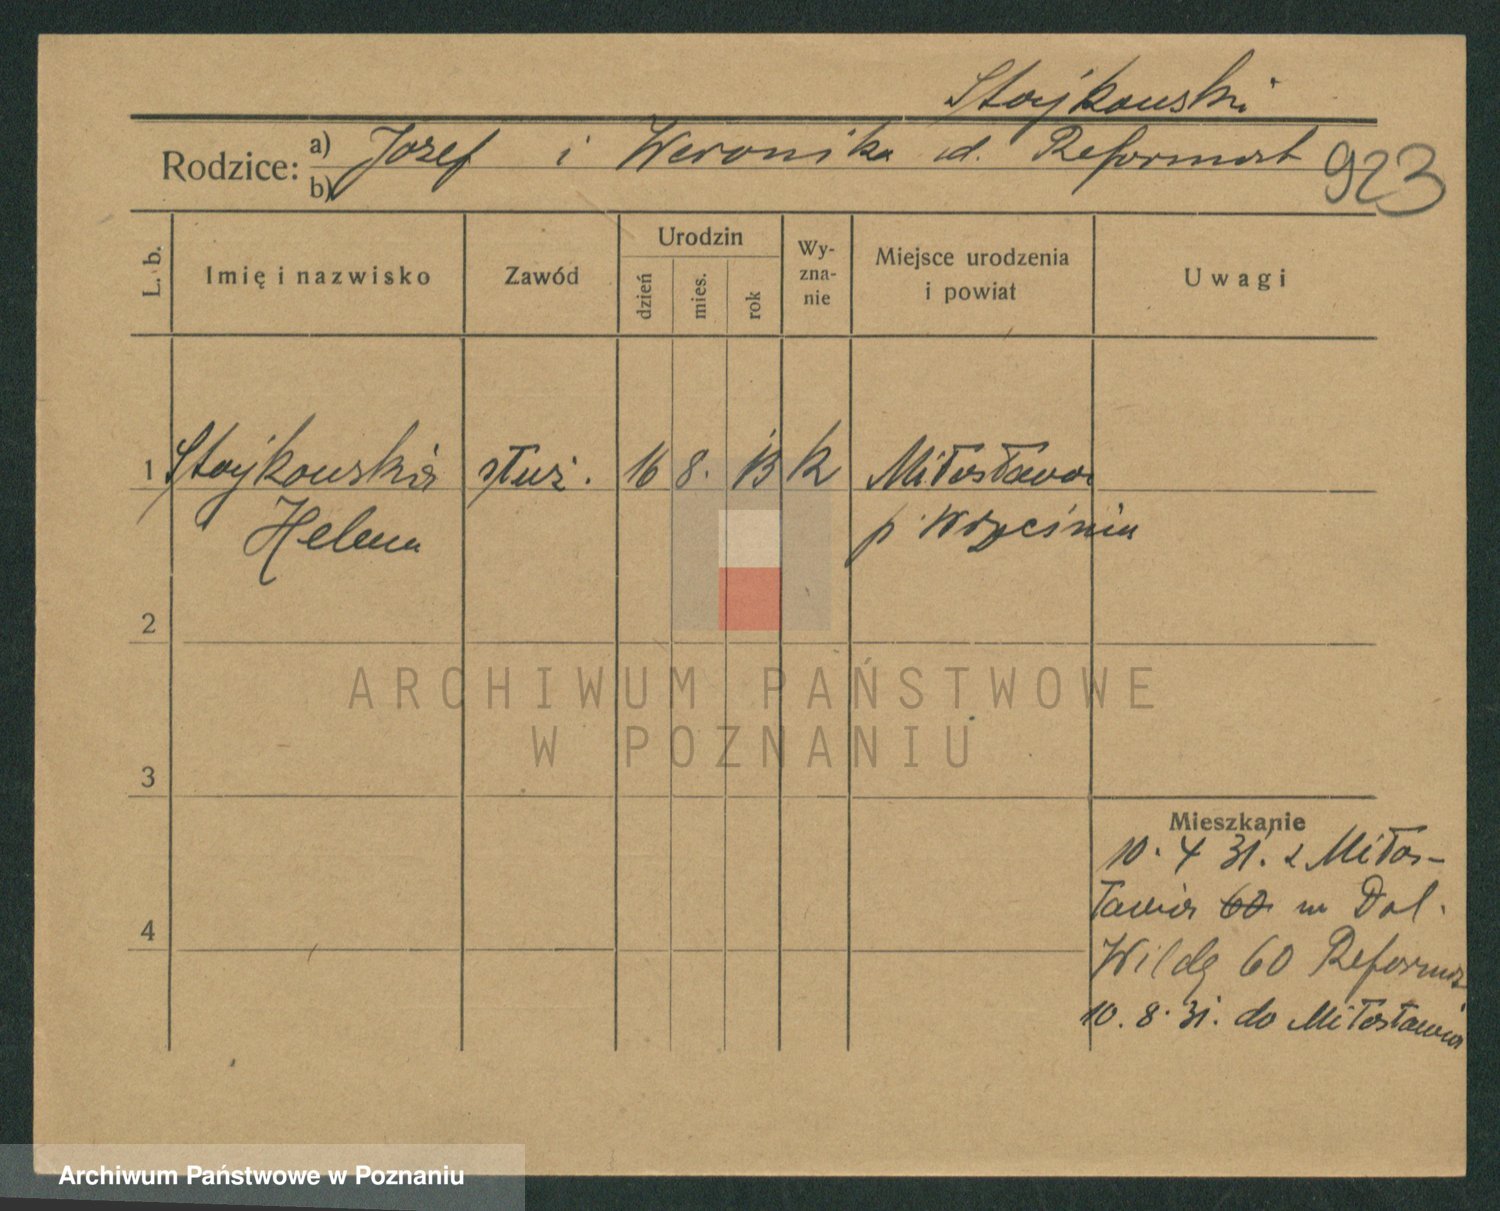 Stojkowski
Rodzice: a) Józef i Weronika d. Reformat 923
b)
L. b. Imię i nazwisko Zawód Urodzin dzień mies. rok Wyznanie Miejsce urodzenia i powiat Uwagi
1 Stojkowska służ. 16 8. 13 k Miłosława
Helena p. Września
2
3
4
Mieszkanie
10. 4 31. z Miło-
sława 60 m Dol.
Wildę 60 Reformat
10. 8. 31. do Miłosławia
ARCHIWUM PAŃSTWOWE
W POZNANIU
Archiwum Państwowe w Poznaniu